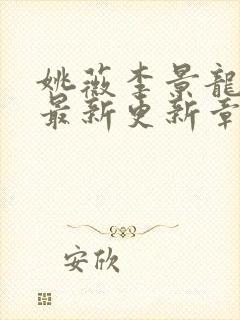 姚薇李景龍
最新更新章
安欣